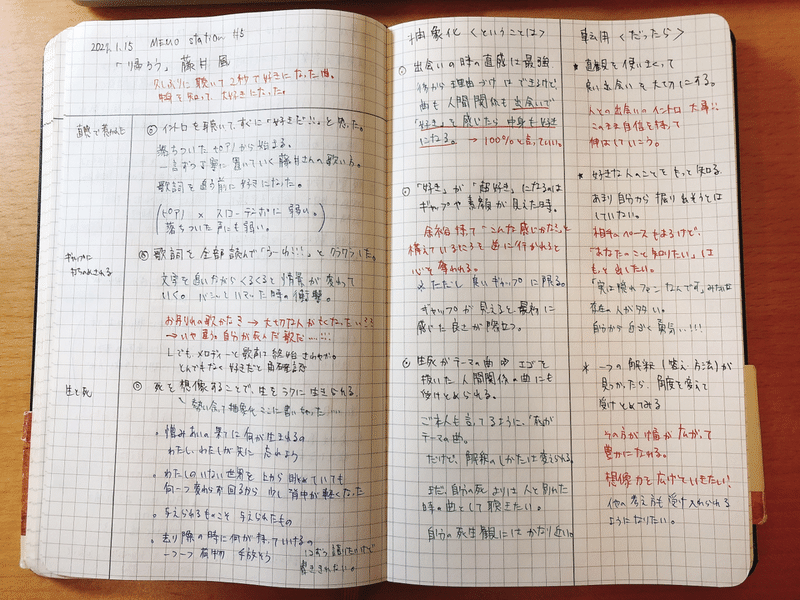 2021.1.15 MEMO station #5
「帰ろう」藤井 風
久しぶりに聴いて2秒で好きになった曲。
歌詞を知って、大好きになった。
直感で惹かれた
イントロを聴いて、すぐに「好きだ!!」と思った。
落ちついたピアノから始まる。
言ずつ丁寧に置いていく藤井さんの歌い方。
歌詞を追う前に好きになった。
(ピアノ × スローテンポに弱い。
落ちついた声にも弱い。)
ギャップに
打ちのめされる
歌詞を全部読んで「うーわ!!!」とクラクラした。
文字を追いながらくるくると情景が変わって
いく。
お別れの歌かな? → 大切な人が亡くなった…??
→ いや違う。自分が死んだ歌だ…!!!
しかも、メロディーと歌声で終始さわやか。
とんでもなく好きだと
生と死
死を想像することで、生をラクに生きられる。
勢い余って抽象化ここに書いちゃった…
・憎みあいの果てに何が生まれるの
わたし、わたしが先に 忘れよう
・わたしのいない世界を 上から眺めていても
何一つ変わらず回るから 少し背中が軽くなった
・与えられるものこそ 与えられたもの
・去り際の時に何が持っていけるの
一つ一つ 荷物 手放そう
書ききれない。
抽象化〈ということは〉
出会いの時の直感は最強
後から理由づけはできるけど、
曲も人間関係も出会いで
「好き」を感じたら中身も好き
になる。 → 100%と言っていい。
「好き」が「超好き」になるのは
ギャップや素顔が見えた時。
余裕持って"こんな感じかな?"と
構えているところを 曲に行かれると
心を奪われる。
※ただし 良いギャップに限る。
ギャップが見えると最初に
感じた良さが際立つ。
生死がテーマの曲 → エゴを
抜いた人間関係の曲にも
受けとめられる。
ご本人も言ってるように、「死」が
テーマの曲。
だけど、解釈のしかたは変えられる。
まだ、自分の死よりは人と別れた
時の曲として聴きたい。
自分の死生観にはかなり近い。
転用〈だったら〉
直観を使いまくって
良い出会いを大切にする。
人との出会いのイントロ 大事!!
このまま自信を持って
伸ばしていこう。
好きな人のことをもっと知る
あまり自分から掘り出そうとは
していない。
相手のペースもあるけど、
「あなたのこと知りたい」は
もっと出したい。
「実は隠れファンなんです」みたいな
存在の人が多い。
自分から近づく勇気…!!!
一つの解釈(答え、方法)が
見つかったら、角度を変えて
受けとめてみる
その方が幅が広がって
豊かになれる。
想像力を広げていきたい!
他の考え方も受け入れられる
ようになりたい。